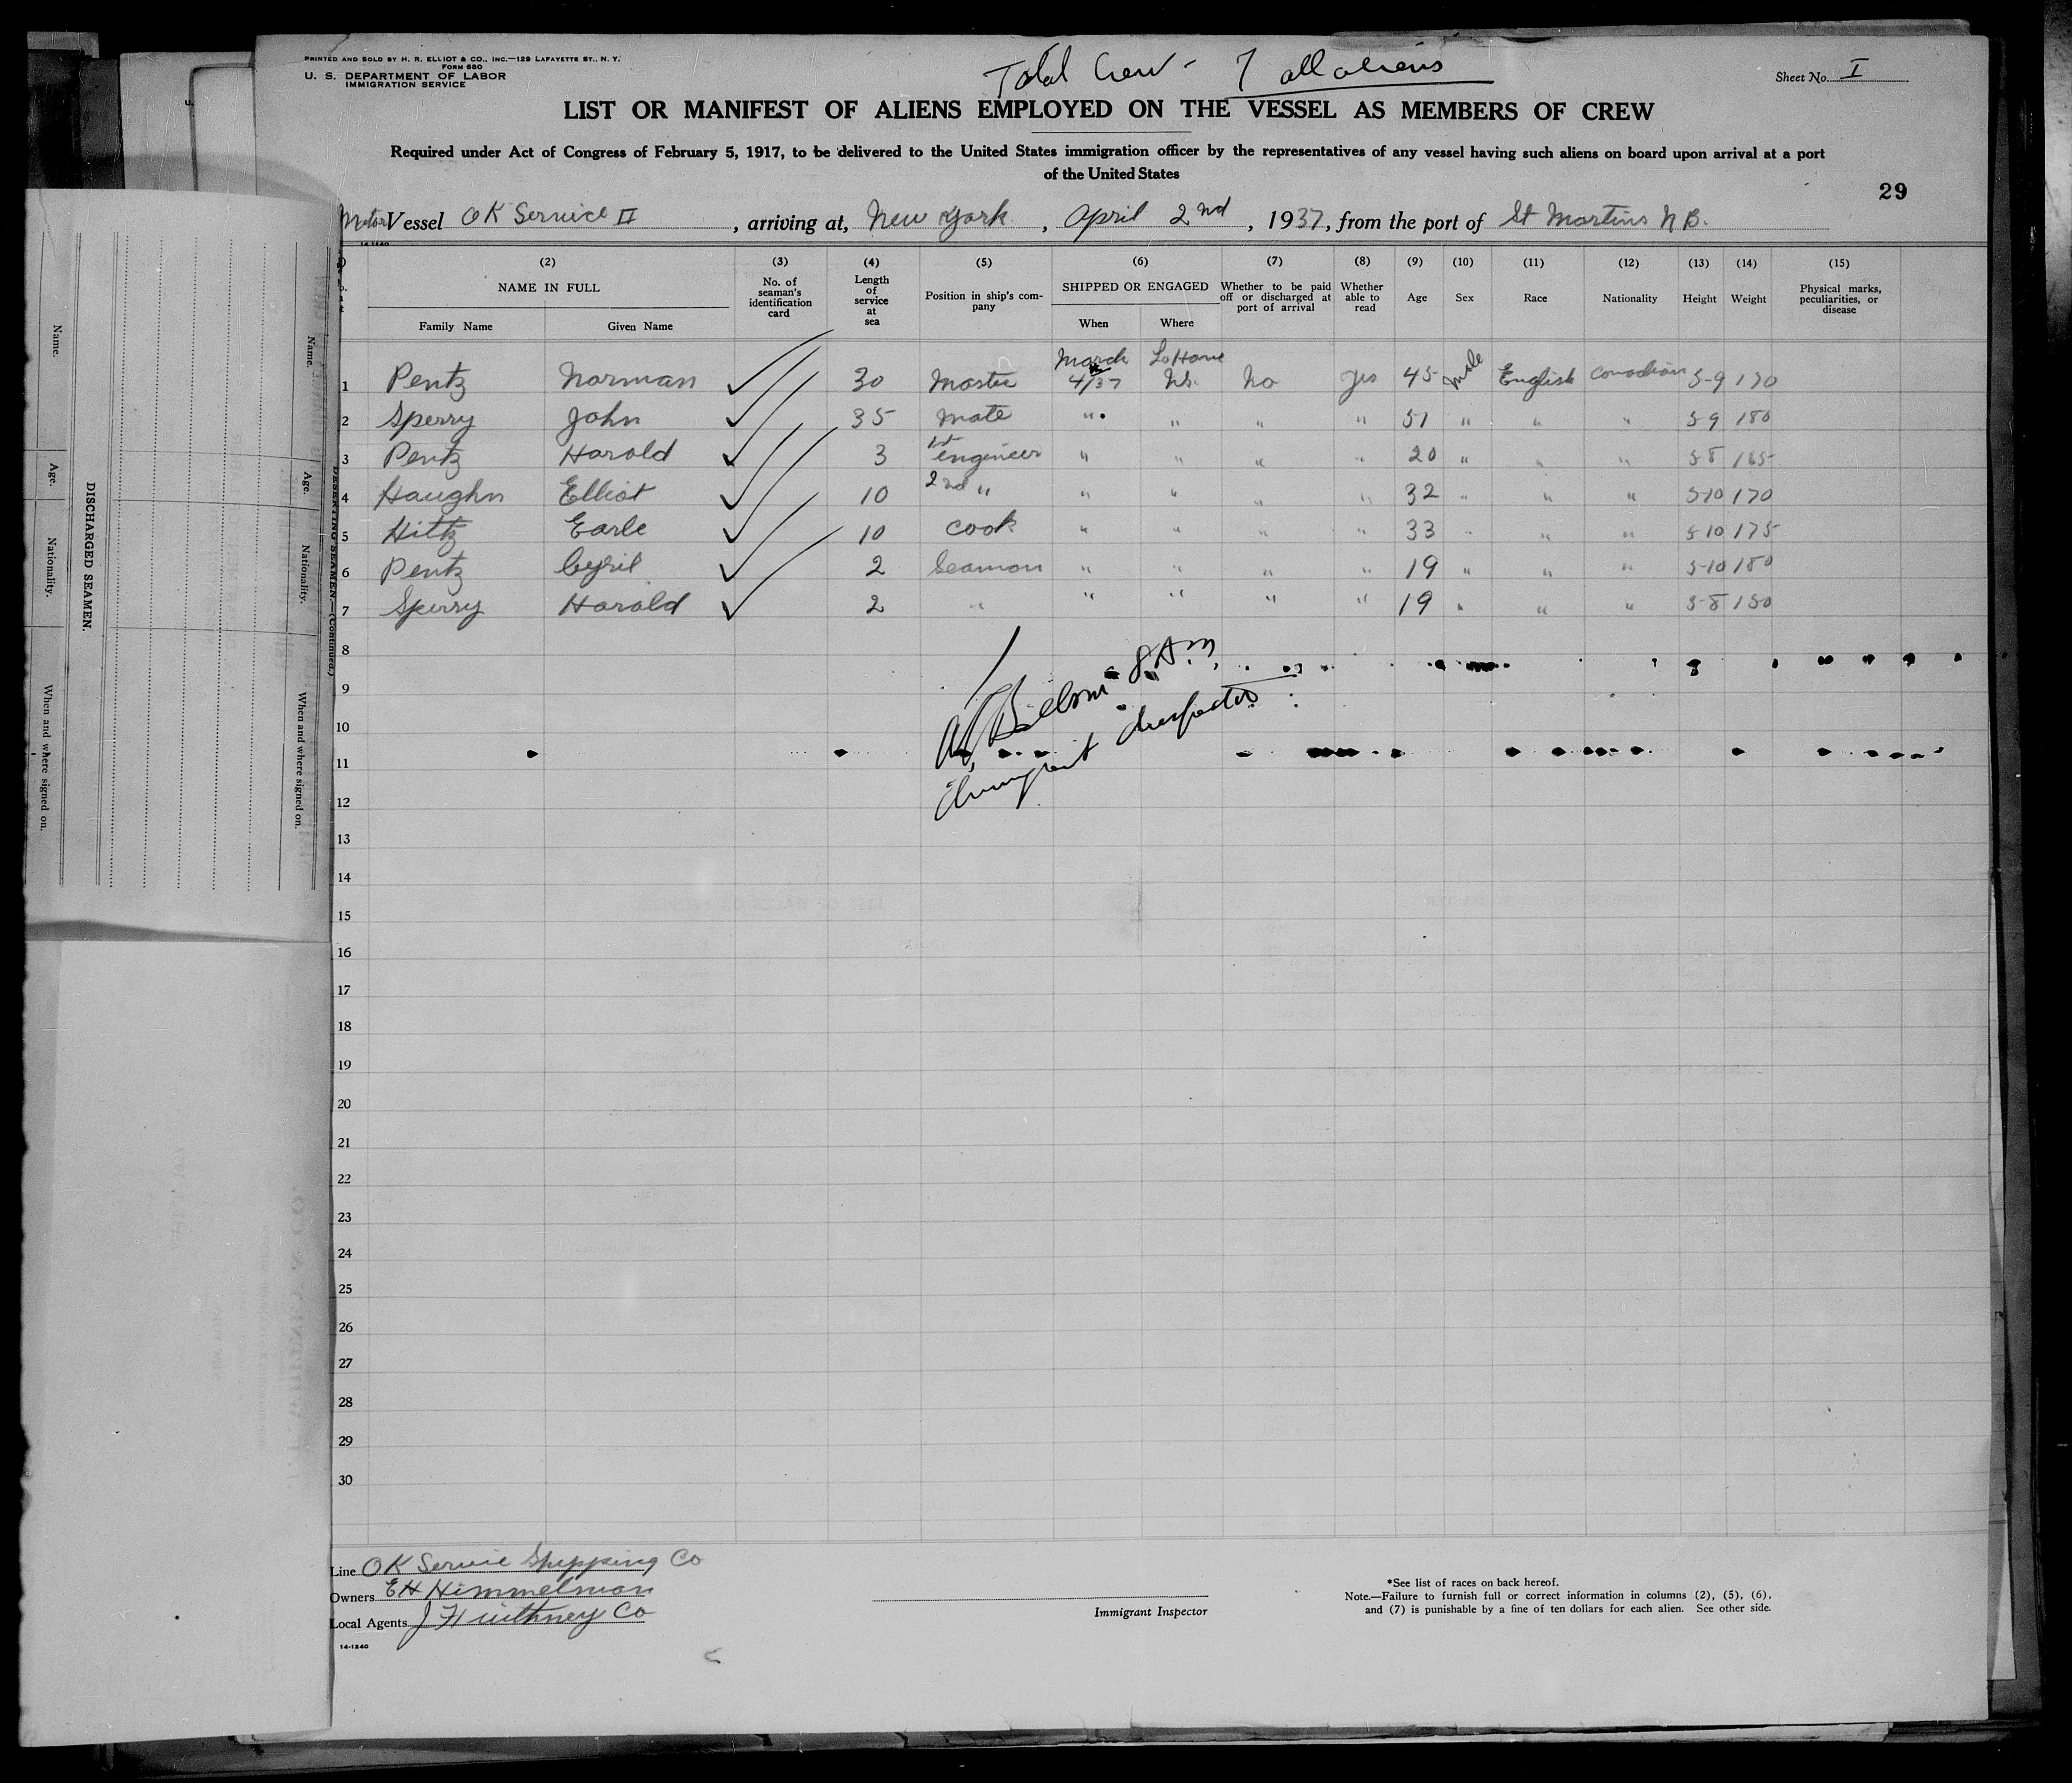 PRINTED AND SOLD BY H. R. ELLIOT & CO., INC.—129 LAFAYETTE ST., N. Y.
FORM 680
U. S. DEPARTMENT OF LABOR
IMMIGRATION SERVICE
Total Crew - 7 all aliens
Sheet No. I
LIST OR MANIFEST OF ALIENS EMPLOYED ON THE VESSEL AS MEMBERS OF CREW
Required under Act of Congress of February 5, 1917, to be delivered to the United States immigration officer by the representatives of any vessel having such aliens on board upon arrival at a port
of the United States
29
Motor Vessel OK Service II, arriving at, New York, April 2nd, 1937, from the port of St Martins N B.
14-1240
(2) (3) (4) (5) (6) (7) (8) (9) (10) (11) (12) (13) (14) (15)
NAME IN FULL
Family Name Given Name
No. of seaman's identification card
Length of service at sea
Position in ship's company
SHIPPED OR ENGAGED
When Where
Whether to be paid off or discharged at port of arrival
Whether able to read
Age Sex Race Nationality Height Weight
Physical marks, peculiarities, or disease
1 Pentz Norman 30 Master March 4/37 LaHave NS. No yes 45 male English Canadian 5-9 170
2 Sperry John 35 mate " " " " 51 " " " 5 9 180
3 Pentz Harold 3 1st engineer " " " " 20 " " " 5 8 165
4 Haughn Elliot 10 2nd " " " " " 32 " " " 5-10 170
5 Hiltz Earle 10 cook " " " " 33 " " " 5 10 175
6 Pentz Cyril 2 Seaman " " " " 19 " " " 5-10 180
7 Sperry Harold 2 " " " " " 19 " " " 5-8 150
8
9
10
11
12
13
14
15
16
17
18
19
20
21
22
23
24
25
26
27
28
29
30
Immigrant Inspector
Line OK Service Shipping Co
Owners EH Himmelman
Local Agents
14-1240
Immigrant Inspector
*See list of races on back hereof.
Note.—Failure to furnish full or correct information in columns (2), (5), (6),
and (7) is punishable by a fine of ten dollars for each alien. See other side.
Name.
Age.
Nationality.
When and where signed on.
DISCHARGED SEAMEN.
Name.
Age.
Nationality.
When and where signed on.
DESERTING SEAMEN.—(Continued.)